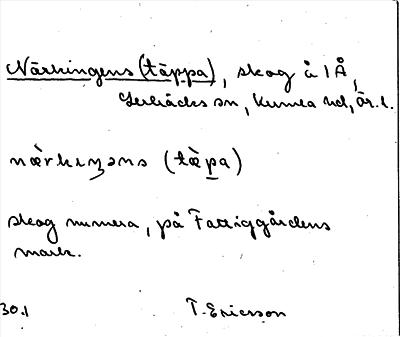 Närkingens (täppa), skog å 1Å,
Lerbäcks sn, Kumla hd, Ör. l.
nærkıŋəns (tæ̀pa)
skog numera, på Fattiggårdens
mark.
30.1 T. Ericsson